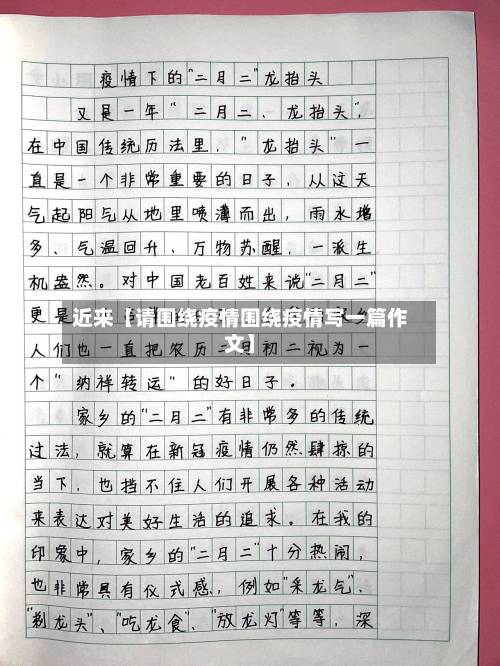 疫情下的"二月二"龙抬头
又是一年"二月二、龙抬头",
在中国传统历法里,"龙抬头"一
直是一个非常重要的日子,从这天
气起阳气从地里喷薄而出,雨水增
多、气温回升、万物苏醒,一派生
机盎然。对中国老百姓来说"二月二"
近来【请围绕疫情围绕疫情写一篇作
文】
更是
人们也一直把农历二月初二视为一
个"纳祥转运"的好日子。
家乡的"二月二"有非常多的传统
过法,就算在新冠疫情仍然肆掠的
当下,也挡不住人们开展各种活动
来表达对美好生活的追求。在我的
印象中,家乡的"二月二"十分热闹,
也非常具有仪式感,例如"采龙气"、
"剃龙头"、"吃龙食"、"放龙灯"等等,深